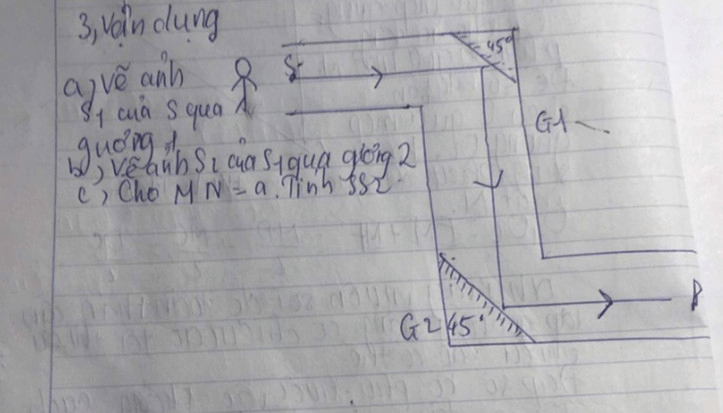 3, Vận dụng
a, vẽ ảnh
S1 của S qua
gương 1
b, Vẽ ảnh S2 của S1 qua gương 2
c, Cho MN = a. Tính SS2.
S
45°
G1
G2 45°